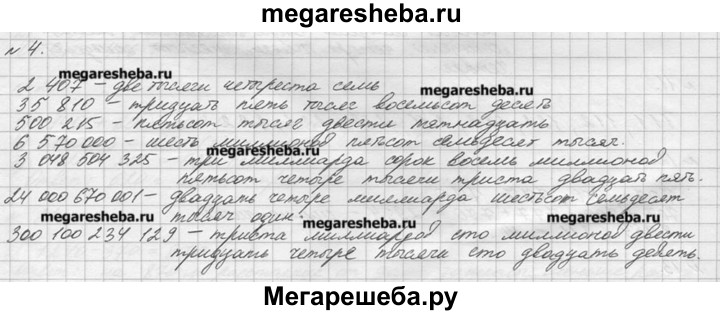 megaresheba.ru
№ 4.
megaresheba.ru
2 407 – две тысячи четыреста семь
megaresheba.ru
35 810 – тридцать пять тысяч восемьсот десять
500 215 – пятьсот тысяч двести пятнадцать
6 570 000 – шесть миллионов пятьсот семьдесят тысяч.
megaresheba.ru
3 048 504 325 – три миллиарда сорок восемь миллионов
пятьсот четыре тысячи триста двадцать пять.
24 000 670 001 – двадцать четыре миллиарда шестьсот семьдесят
megaresheba.ru тысяч один. megaresheba.ru megaresheba.ru
300 100 234 129 – триста миллиардов сто миллионов двести
тридцать четыре тысячи сто двадцать девять.
Мегарешеба.ру